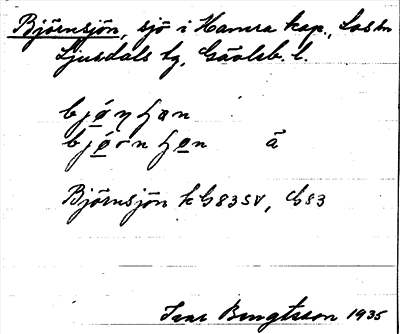 Björnsjön, sjö i Hamra kap., Los sn
Ljusdals tg, Gävleb. l.
bjø̱ɳ ɧøn
bjø̱rn ɧø̱n ä
Björnsjön k G83SV, G83
Ivar Bengtsson 1935